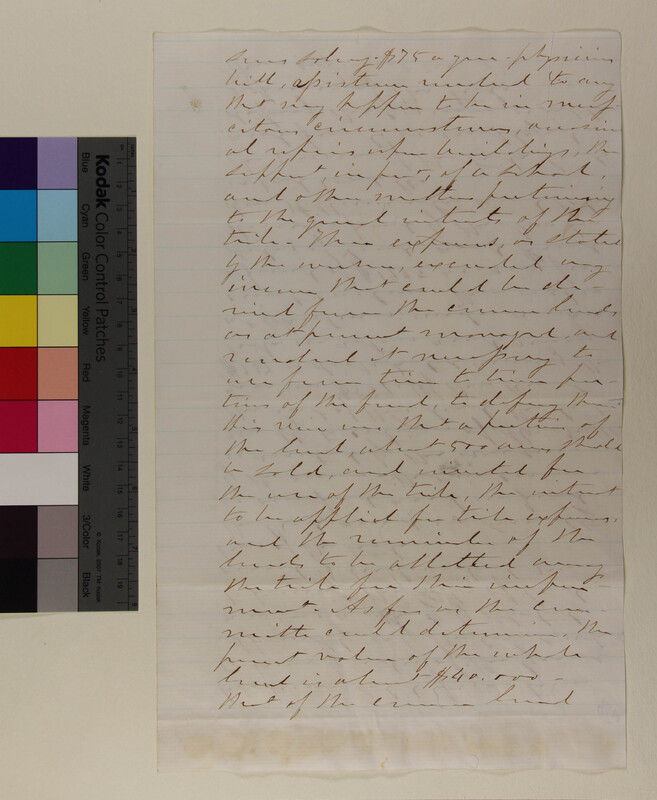 salary $75 a year, physicians
bills, assistance rendered to any
that may happen to be in
circumstances, occasion-
al repairs upon buildings, the
support, in part, of a school,
and other matters pertaining
to the general interests of the
tribe. These expenses, as stated
by the, exceeded any
income that could be de-
rived from the common lands
as at present managed, and
rendered it necessary to
use from time to time por-
tions of the fund, to defray them.
His view was that a portion of
the land, about 500 acres, should
be sold, and invested for
the use of the tribe, the interest
to be applied for tribe expenses,
and the remainder of the
lands to be allotted among
the tribe for their improve
ment. As far as the Com
mittee could determine, the
present value of the whole
land is about $40.000 -
that of the common land
Kodak Color Control Patches
Blue
Cyan
Green
Yellow
Red
Magenta
White
3/Color
Black